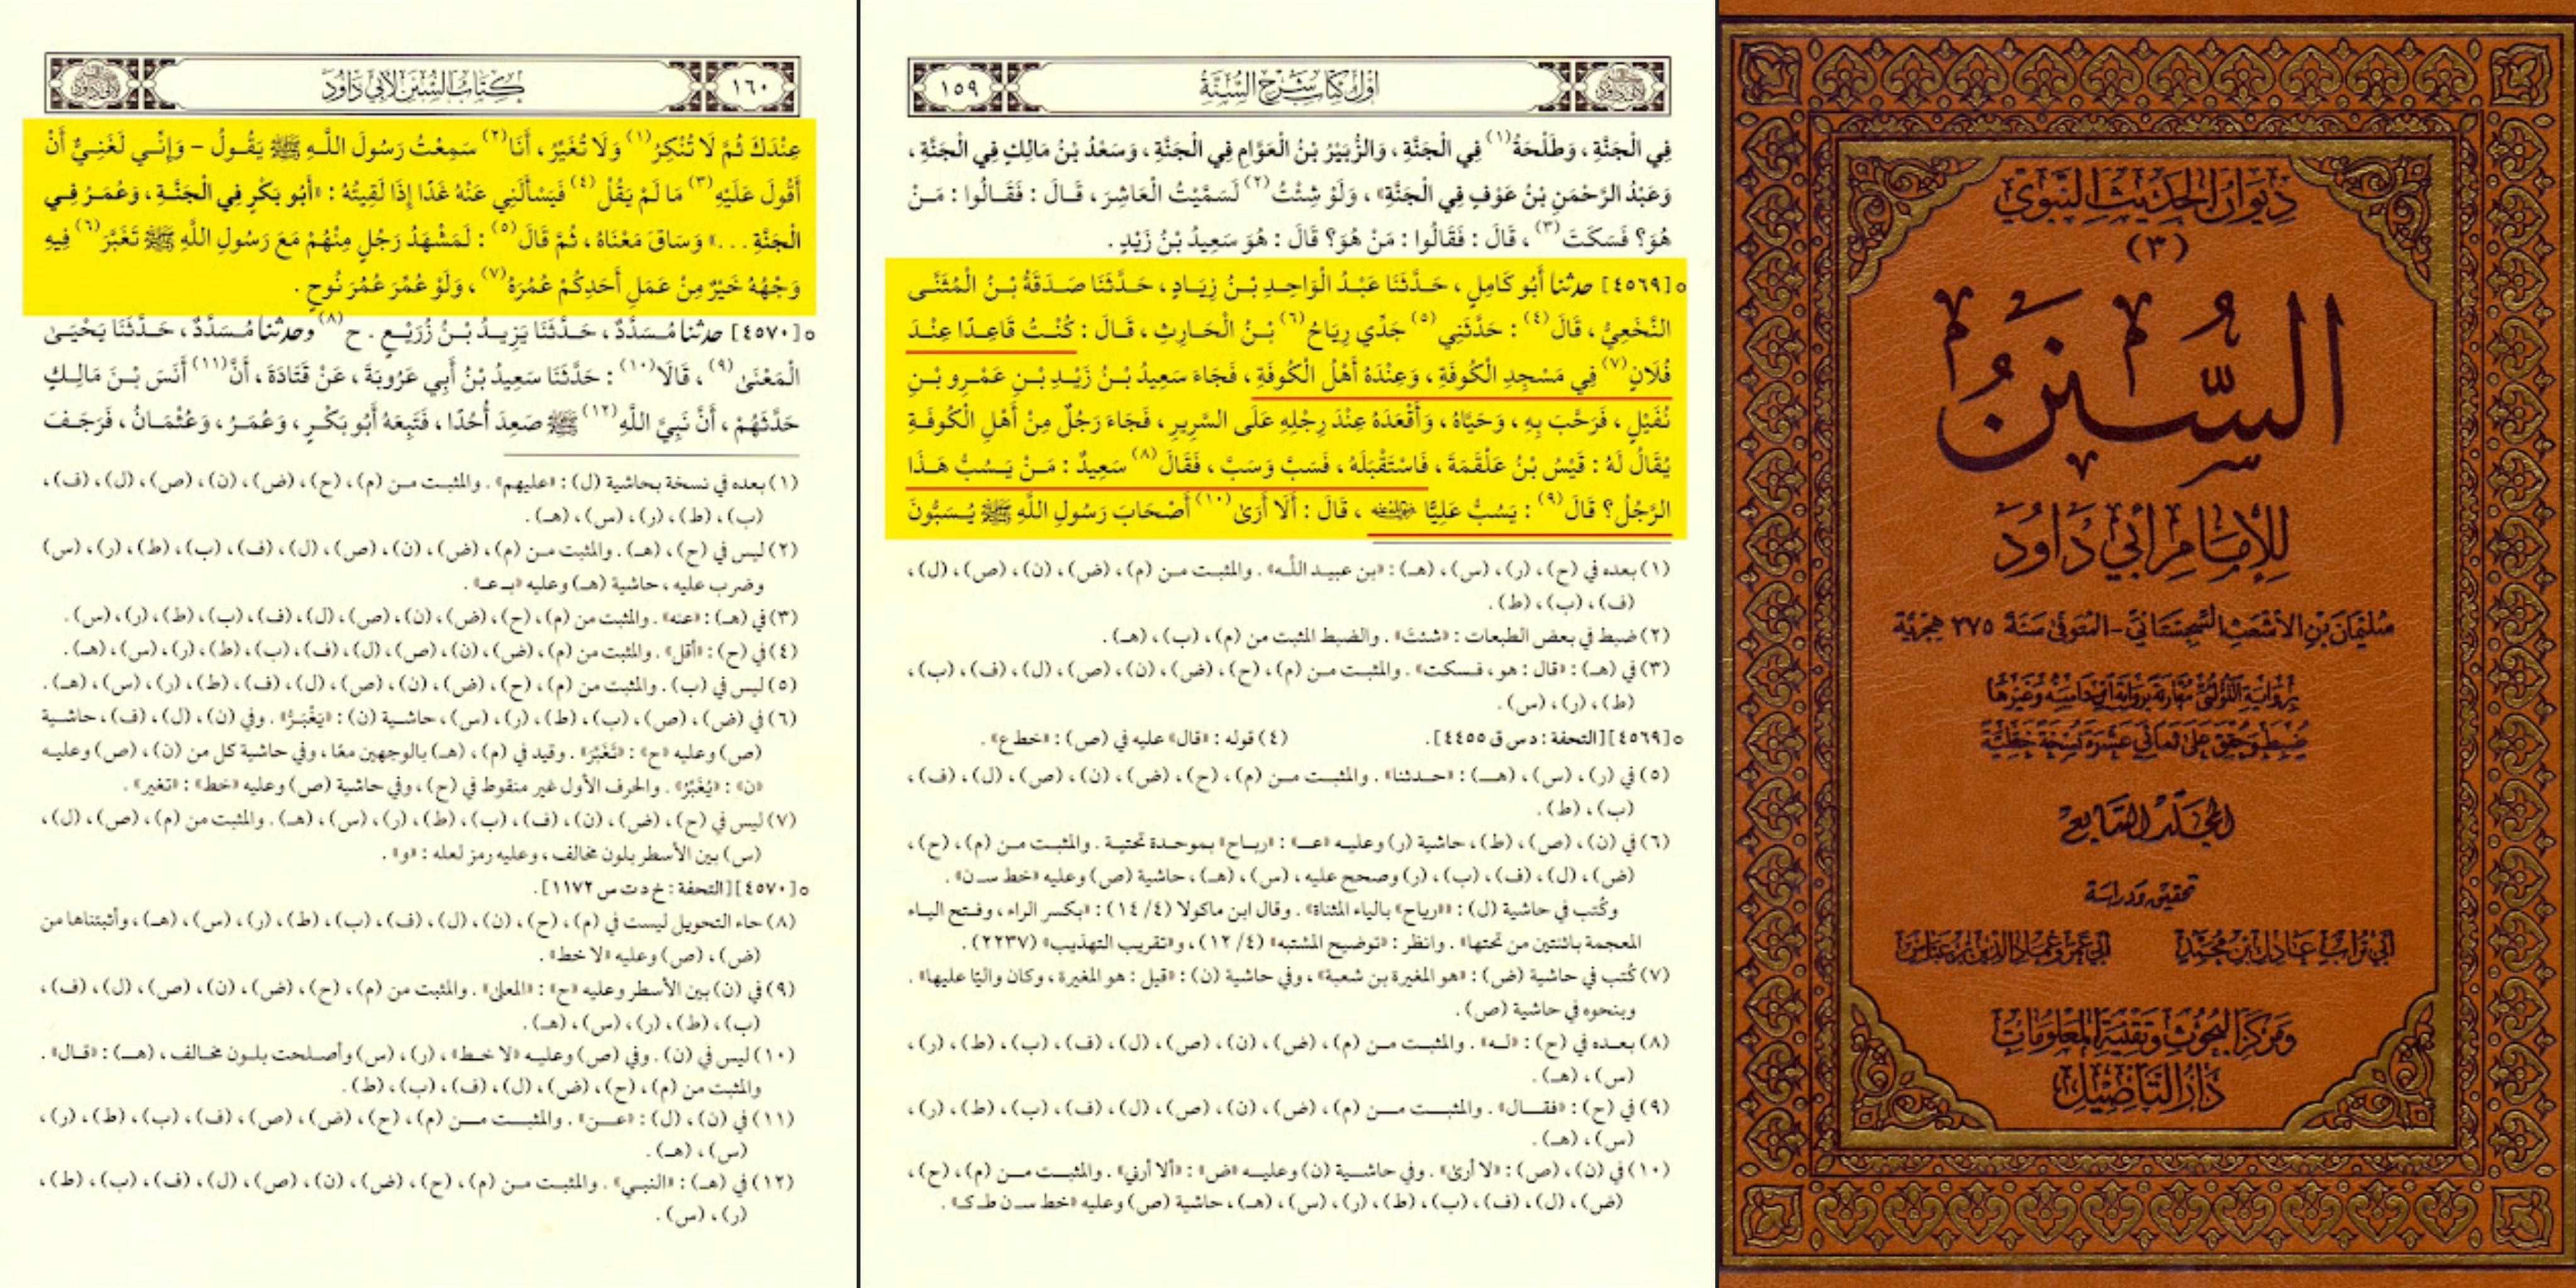 ديوان الحديث النبوي
(٣)
السنن
للإمام أبي داود
سليمان بن الأشعث السجستاني - المتوفى سنة ٢٧٥ هجرية
برواية اللؤلؤي مقارنة برواية ابن داسه وغيرها
ضبط وحقق على ثماني عشرة نسخة خطية
المجلد السابع
تحقيق ودراسة
أبي تراب عادل بن محمد
أبي عمرو عماد الدين بن عباس
ومركز البحوث وتقنية المعلومات
دار التأصيل
أول كتاب شرح السنة
١٥٩
فِي الْجَنَّةِ، وَطَلْحَةُ(١) فِي الْجَنَّةِ، وَالزُّبَيْرُ بْنُ الْعَوَّامِ فِي الْجَنَّةِ، وَسَعْدُ بْنُ مَالِكٍ فِي الْجَنَّةِ،
وَعَبْدُ الرَّحْمَنِ بْنُ عَوْفٍ فِي الْجَنَّةِ»، وَلَوْ شِئْتُ(٢) لَسَمَّيْتُ الْعَاشِرَ، قَالَ: فَقَالُوا: مَنْ
هُوَ؟ فَسَكَتَ(٣)، قَالَ: فَقَالُوا: مَنْ هُوَ؟ قَالَ: هُوَ سَعِيدُ بْنُ زَيْدٍ.
[٤٥٦٩] حدثنا أَبُو كَامِلٍ، حَدَّثَنَا عَبْدُ الْوَاحِدِ بْنُ زِيَادٍ، حَدَّثَنَا صَدَقَةُ بْنُ الْمُثَنَّى
النَّخَعِيُّ، قَالَ(٤): حَدَّثَنِي(٥) جَدِّي رِيَاحُ(٦) بْنُ الْحَارِثِ، قَالَ: كُنْتُ قَاعِدًا عِنْدَ
فُلَانٍ(٧) فِي مَسْجِدِ الْكُوفَةِ، وَعِنْدَهُ أَهْلُ الْكُوفَةِ، فَجَاءَ سَعِيدُ بْنُ زَيْدِ بْنِ عَمْرِو بْنِ
نُفَيْلٍ، فَرَحَّبَ بِهِ، وَحَيَّاهُ، وَأَقْعَدَهُ عِنْدَ رِجْلِهِ عَلَى السَّرِيرِ، فَجَاءَ رَجُلٌ مِنْ أَهْلِ الْكُوفَةِ
يُقَالُ لَهُ: قَيْسُ بْنُ عَلْقَمَةَ، فَاسْتَقْبَلَهُ، فَسَبَّ وَسَبَّ، فَقَالَ(٨) سَعِيدٌ: مَنْ يَسُبُّ هَذَا
الرَّجُلُ؟ قَالَ(٩): يَسُبُّ عَلِيًّا رضي الله عنه، قَالَ: أَلَا أَرَى(١٠) أَصْحَابَ رَسُولِ اللَّهِ ﷺ يُسَبُّونَ
(١) بعده في (ح)، (ر)، (س)، (هـ): «بن عبيد الله». والمثبت من (م)، (ض)، (ن)، (ص)، (ل)،
(ف)، (ب)، (ط).
(٢) ضبط في بعض الطبعات: «شئتَ». والضبط المثبت من (م)، (ب)، (هـ).
(٣) في (هـ): «قال: هو، فسكت». والمثبت من (م)، (ح)، (ض)، (ن)، (ص)، (ل)، (ف)، (ب)،
(ط)، (ر)، (س).
[٤٥٦٩] [التحفة: د س ق ٤٤٥٥]. (٤) قوله: «قال» عليه في (ص): «خط ع».
(٥) في (ر)، (س)، (هـ): «حدثنا». والمثبت من (م)، (ح)، (ض)، (ن)، (ص)، (ل)، (ف)،
(ب)، (ط).
(٦) في (ن)، (ص)، (ط)، حاشية (ر) وعليه «عـ»: «رباح» بموحدة تحتية. والمثبت من (م)، (ح)،
(ض)، (ل)، (ف)، (ب)، (ر) وصحح عليه، (س)، (هـ)، حاشية (ص) وعليه «خط سـ ن».
وكُتب في حاشية (ل): «رياح» بالياء المثناة». وقال ابن ماكولا (٤/ ١٤): «بكسر الراء، وفتح الياء
المعجمة باثنتين من تحتها». وانظر: «توضيح المشتبه» (٤/ ١٢)، و«تقريب التهذيب» (٢٢٣٧).
(٧) كُتب في حاشية (ض): «هو المغيرة بن شعبة»، وفي حاشية (ن): «قيل: هو المغيرة، وكان واليًا عليها».
وبنحوه في حاشية (ص).
(٨) بعده في (ح): «له». والمثبت من (م)، (ض)، (ن)، (ص)، (ل)، (ف)، (ب)، (ط)، (ر)،
(س)، (هـ).
(٩) في (ح): «فقال». والمثبت من (م)، (ض)، (ن)، (ص)، (ل)، (ف)، (ب)، (ط)، (ر)،
(س)، (هـ).
(١٠) في (ن)، (ص): «لا أرى». وفي حاشية (ن) وعليه «ض»: «ألا أرني». والمثبت من (م)، (ح)،
(ض)، (ل)، (ف)، (ب)، (ط)، (ر)، (س)، (هـ)، حاشية (ص) وعليه «خط سـ ن طـ كـ».
١٦٠
كتاب السنن لأبي داود
عِنْدَكَ ثُمَّ لَا تُنْكِرُ(١) وَلَا تُغَيِّرُ، أَنَا(٢) سَمِعْتُ رَسُولَ اللَّهِ ﷺ يَقُولُ - وَإِنِّي لَغَنِيٌّ أَنْ
أَقُولَ عَلَيْهِ(٣) مَا لَمْ يَقُلْ(٤) فَيَسْأَلَنِي عَنْهُ غَدًا إِذَا لَقِيتُهُ: «أَبُو بَكْرٍ فِي الْجَنَّةِ، وَعُمَرُ فِي
الْجَنَّةِ...» وَسَاقَ مَعْنَاهُ، ثُمَّ قَالَ(٥): لَمَشْهَدُ رَجُلٍ مِنْهُمْ مَعَ رَسُولِ اللَّهِ ﷺ تَغَبَّرَ(٦) فِيهِ
وَجْهُهُ خَيْرٌ مِنْ عَمَلِ أَحَدِكُمْ عُمُرَهُ(٧)، وَلَوْ عُمِّرَ عُمُرَ نُوحٍ.
[٤٥٧٠] حدثنا مُسَدَّدٌ، حَدَّثَنَا يَزِيدُ بْنُ زُرَيْعٍ. ح(٨) وحدثنا مُسَدَّدٌ، حَدَّثَنَا يَحْيَى
الْمَعْنَى(٩)، قَالَا(١٠): حَدَّثَنَا سَعِيدُ بْنُ أَبِي عَرُوبَةَ، عَنْ قَتَادَةَ، أَنَّ(١١) أَنَسَ بْنَ مَالِكٍ
حَدَّثَهُمْ، أَنَّ نَبِيَّ اللَّهِ(١٢) ﷺ صَعِدَ أُحُدًا، فَتَبِعَهُ أَبُو بَكْرٍ، وَعُمَرُ، وَعُثْمَانُ، فَرَجَفَ
(١) بعده في نسخة بحاشية (ل): «عليهم». والمثبت من (م)، (ح)، (ض)، (ن)، (ص)، (ل)، (ف)،
(ب)، (ط)، (ر)، (س)، (هـ).
(٢) ليس في (ح)، (هـ). والمثبت من (م)، (ض)، (ن)، (ص)، (ل)، (ف)، (ب)، (ط)، (ر)، (س)
وضرب عليه، حاشية (هـ) وعليه «بـ عـ».
(٣) في (هـ): «عنه». والمثبت من (م)، (ح)، (ض)، (ن)، (ص)، (ل)، (ف)، (ب)، (ط)، (ر)، (س).
(٤) في (ح): «أقل». والمثبت من (م)، (ض)، (ن)، (ص)، (ل)، (ف)، (ب)، (ط)، (ر)، (س)، (هـ).
(٥) ليس في (ب). والمثبت من (م)، (ح)، (ض)، (ن)، (ص)، (ل)، (ف)، (ط)، (ر)، (س)، (هـ).
(٦) في (ض)، (ص)، (ب)، (ط)، (ر)، (س)، حاشية (ن): «يَغْبَرُّ». وفي (ن)، (ل)، (ف)، حاشية
(ص) وعليه «ح»: «تَغَبَّرَ». وقيد في (م)، (هـ) بالوجهين معًا، وفي حاشية كل من (ن)، (ص) وعليه
«ن»: «يُغَبَّرُ». والحرف الأول غير منقوط في (ح)، وفي حاشية (ص) وعليه «خط»: «تغير».
(٧) ليس في (ح)، (ض)، (ن)، (ف)، (ب)، (ط)، (ر)، (س)، (هـ). والمثبت من (م)، (ص)، (ل)،
(س) بين الأسطر بلون مخالف، وعليه رمز لعله: «و».
[٤٥٧٠] [التحفة: خ د ت س ١١٧٢].
(٨) حاء التحويل ليست في (م)، (ح)، (ن)، (ل)، (ف)، (ب)، (ط)، (ر)، (س)، (هـ)، وأثبتناها من
(ض)، (ص) وعليه «لا خط».
(٩) في (ن) بين الأسطر وعليه «ح»: «المعلى». والمثبت من (م)، (ح)، (ض)، (ن)، (ص)، (ل)، (ف)،
(ب)، (ط)، (ر)، (س)، (هـ).
(١٠) ليس في (ن). وفي (ص) وعليه «لا خط»، (ر)، (س) وأصلحت بلون مخالف، (هـ): «قال».
والمثبت من (م)، (ح)، (ض)، (ل)، (ف)، (ب)، (ط).
(١١) في (ن)، (ل): «عن». والمثبت من (م)، (ح)، (ض)، (ص)، (ف)، (ب)، (ط)، (ر)،
(س)، (هـ).
(١٢) في (هـ): «النبي». والمثبت من (م)، (ح)، (ض)، (ن)، (ص)، (ل)، (ف)، (ب)، (ط)،
(ر)، (س).